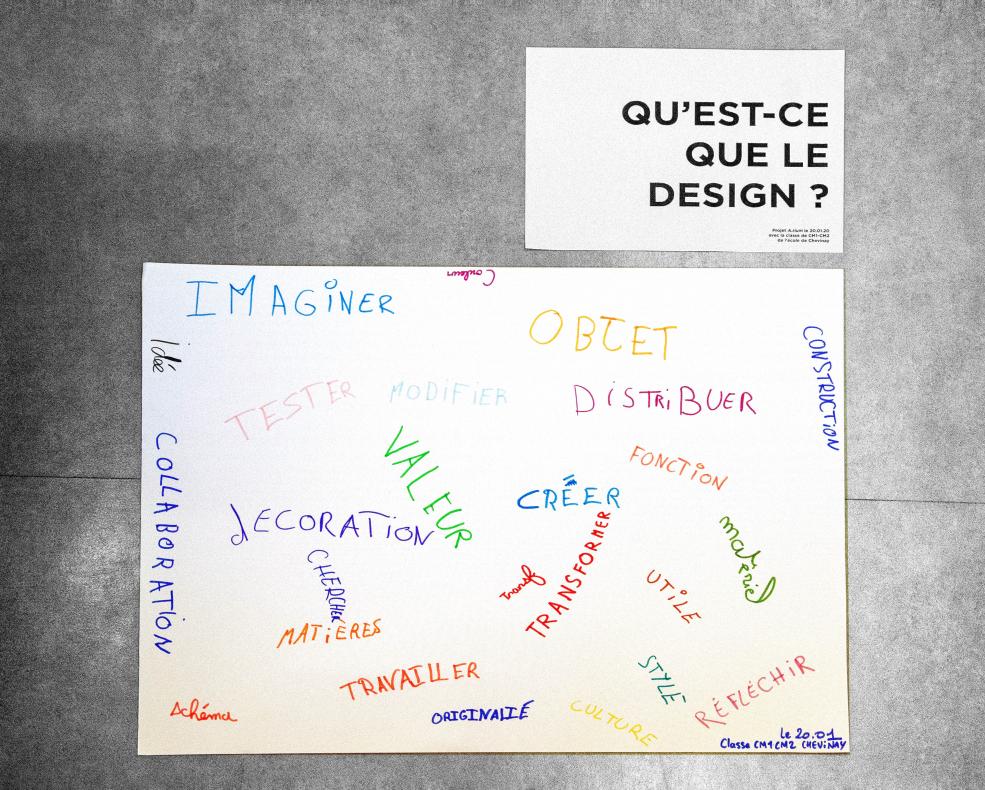 QU'EST-CE
QUE LE
DESIGN ?
Projet A.rium le 20.01.20
avec la classe de CM1-CM2
de l'école de Chevinay
Couleur
IMAGINER
OBJET
Idée
CONSTRUCTION
TESTER
MODIFIER
DISTRIBUER
VALEUR
COLLABORATION
FONCTION
CRÉER
DECORATION
matériel
CHERCHER
TRANSFORMER
transf
UTILE
MATIÈRES
TRAVAILLER
STYLE
RÉFLÉCHIR
schéma
ORIGINALIÉ
CULTURE
le 20.01
Classe CM1 CM2 CHEViNAY